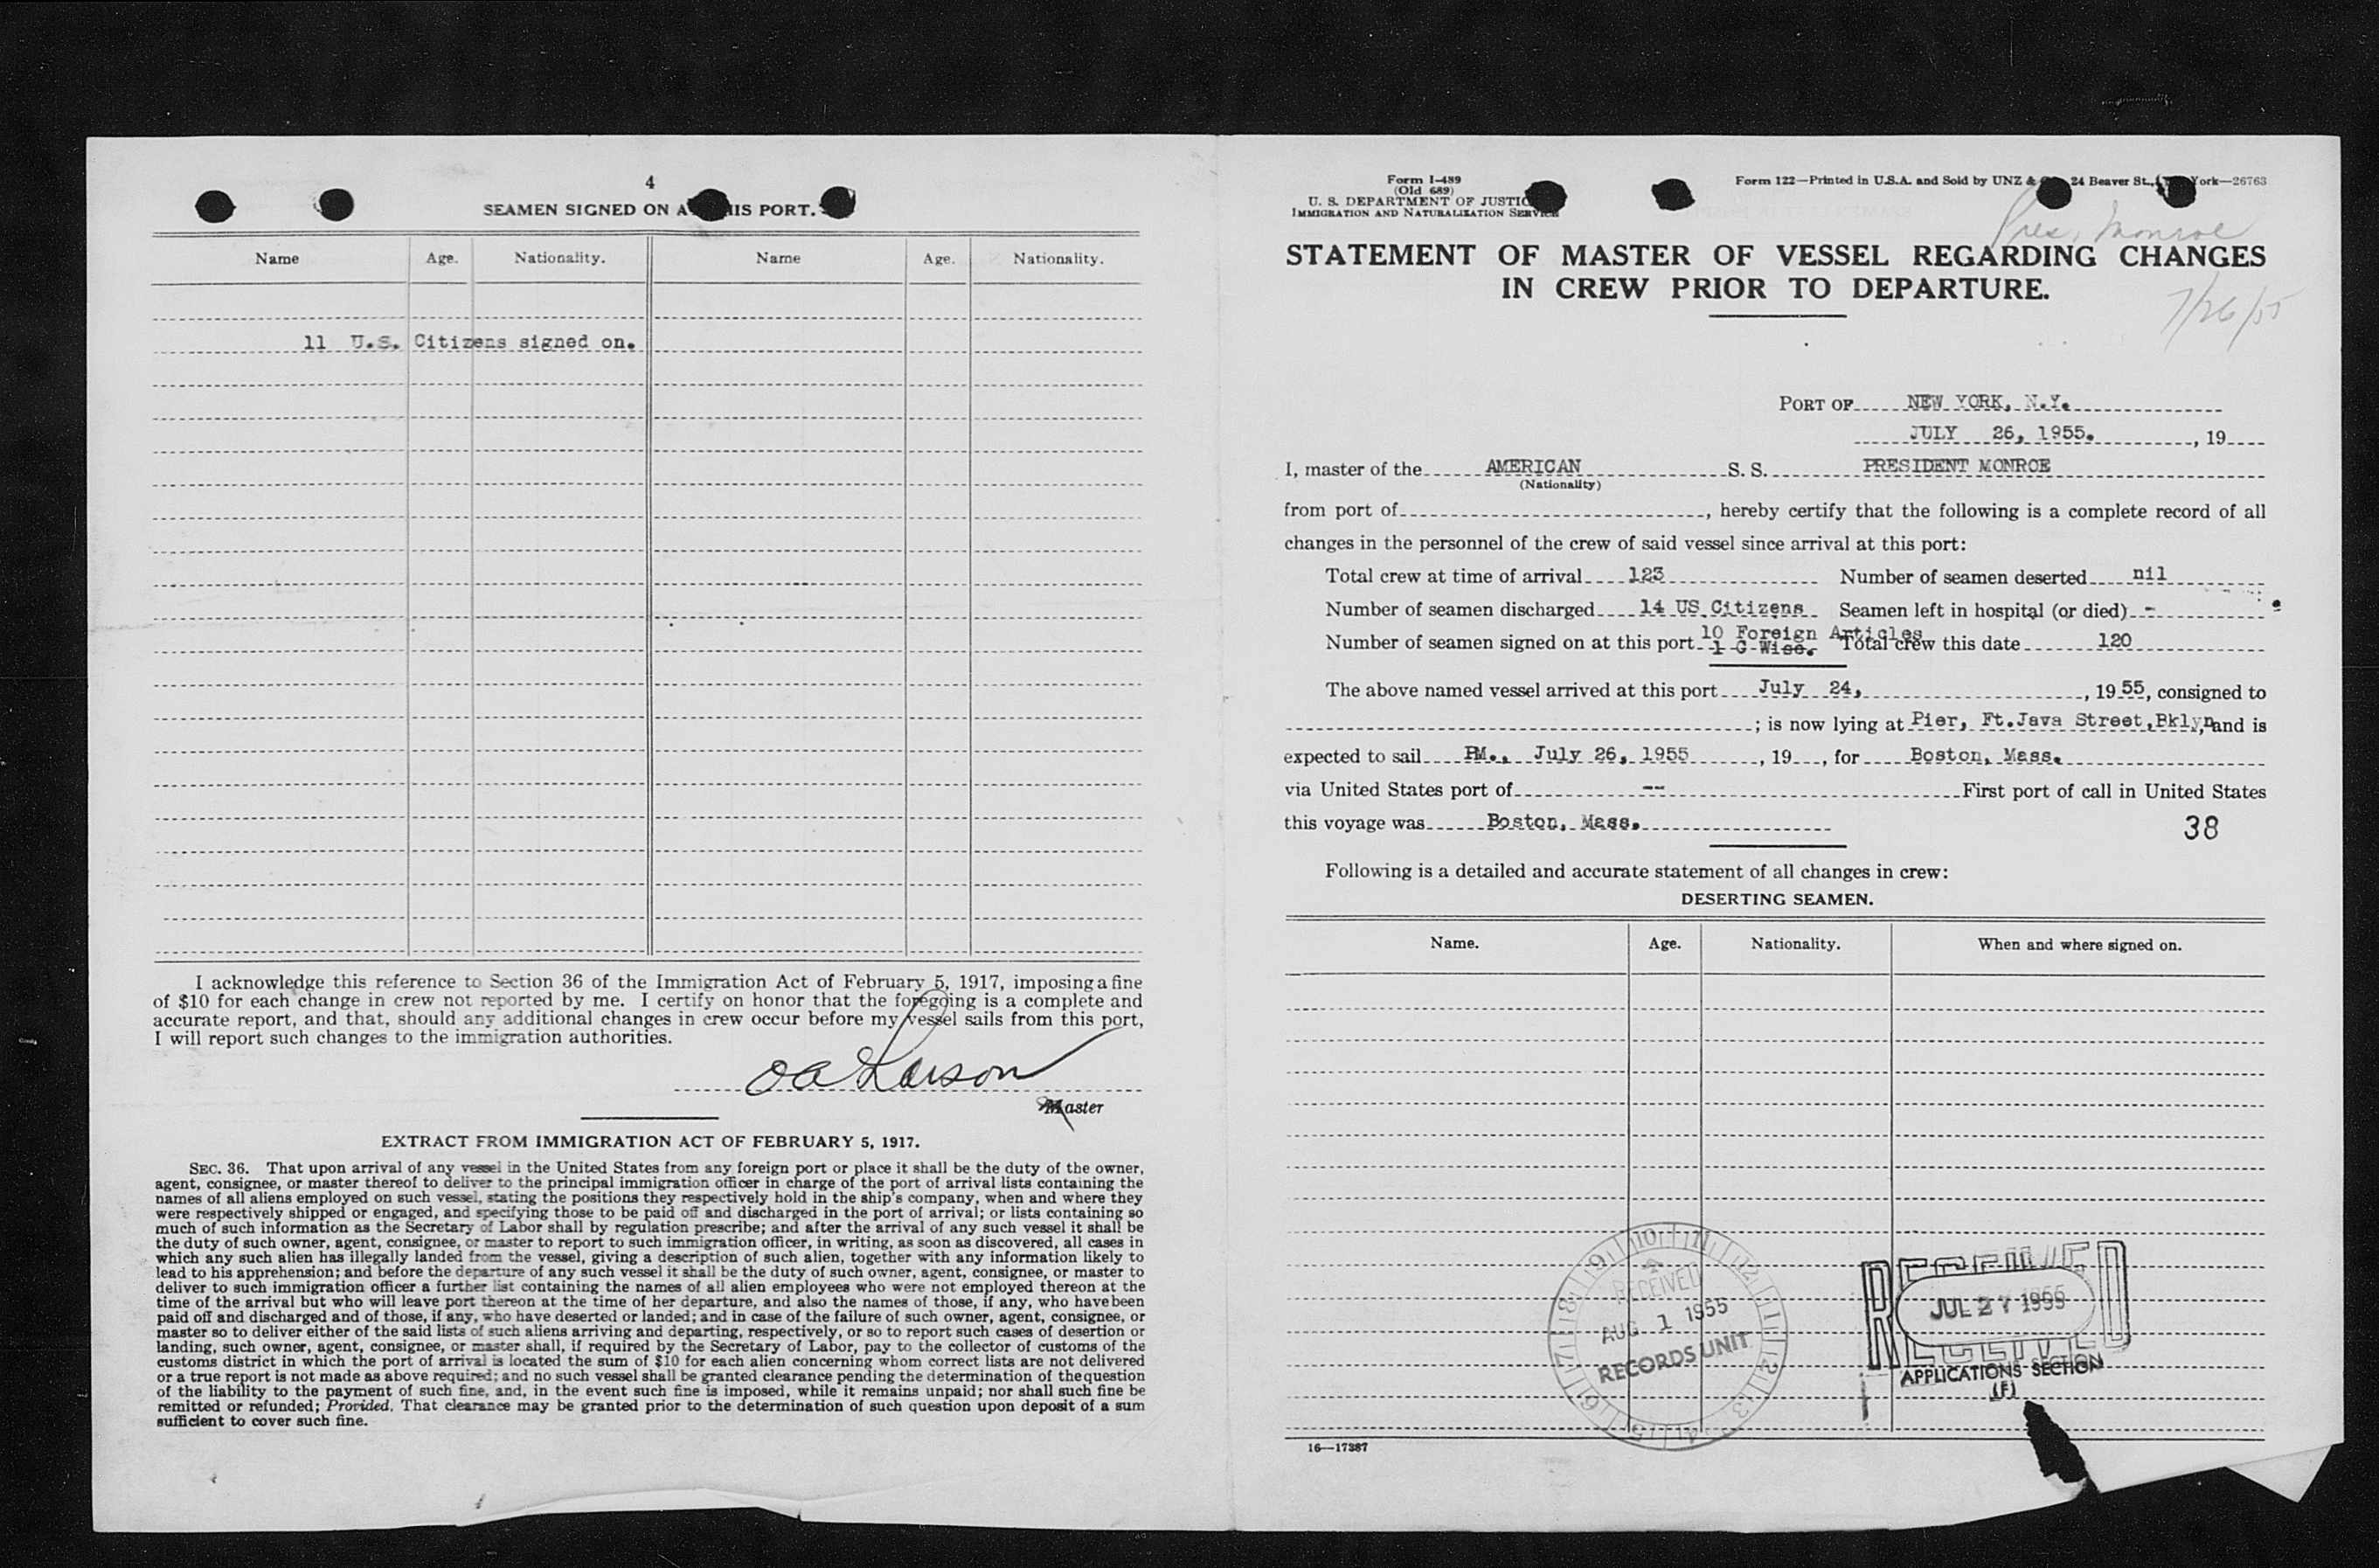 4
SEAMEN SIGNED ON A HIS PORT.
Name Age. Nationality. Name Age. Nationality.
11 U.S. Citizens signed on.
I acknowledge this reference to Section 36 of the Immigration Act of February 5, 1917, imposing a fine
of $10 for each change in crew not reported by me. I certify on honor that the foregoing is a complete and
accurate report, and that, should any additional changes in crew occur before my vessel sails from this port,
I will report such changes to the immigration authorities.
O A Larson
Master
EXTRACT FROM IMMIGRATION ACT OF FEBRUARY 5, 1917.
SEC. 36. That upon arrival of any vessel in the United States from any foreign port or place it shall be the duty of the owner,
agent, consignee, or master thereof to deliver to the principal immigration officer in charge of the port of arrival lists containing the
names of all aliens employed on such vessel, stating the positions they respectively hold in the ship's company, when and where they
were respectively shipped or engaged, and specifying those to be paid off and discharged in the port of arrival; or lists containing so
much of such information as the Secretary of Labor shall by regulation prescribe; and after the arrival of any such vessel it shall be
the duty of such owner, agent, consignee, or master to report to such immigration officer, in writing, as soon as discovered, all cases in
which any such alien has illegally landed from the vessel, giving a description of such alien, together with any information likely to
lead to his apprehension; and before the departure of any such vessel it shall be the duty of such owner, agent, consignee, or master to
deliver to such immigration officer a further list containing the names of all alien employees who were not employed thereon at the
time of the arrival but who will leave port thereon at the time of her departure, and also the names of those, if any, who have been
paid off and discharged and of those, if any, who have deserted or landed; and in case of the failure of such owner, agent, consignee, or
master so to deliver either of the said lists of such aliens arriving and departing, respectively, or so to report such cases of desertion or
landing, such owner, agent, consignee, or master shall, if required by the Secretary of Labor, pay to the collector of customs of the
customs district in which the port of arrival is located the sum of $10 for each alien concerning whom correct lists are not delivered
or a true report is not made as above required; and no such vessel shall be granted clearance pending the determination of the question
of the liability to the payment of such fine, and, in the event such fine is imposed, while it remains unpaid; nor shall such fine be
remitted or refunded; Provided, That clearance may be granted prior to the determination of such question upon deposit of a sum
sufficient to cover such fine.
Form I-489
(Old 689)
U. S. DEPARTMENT OF JUSTIC
IMMIGRATION AND NATURALIZATION SERVICE
Form 122—Printed in U.S.A. and Sold by UNZ & 24 Beaver St., York—26763
Pres. Monroe
STATEMENT OF MASTER OF VESSEL REGARDING CHANGES
IN CREW PRIOR TO DEPARTURE.
7/26/55
PORT OF NEW YORK, N.Y.
JULY 26, 1955. , 19
I, master of the AMERICAN S. S. PRESIDENT MONROE
(Nationality)
from port of , hereby certify that the following is a complete record of all
changes in the personnel of the crew of said vessel since arrival at this port:
Total crew at time of arrival 123 Number of seamen deserted nil
Number of seamen discharged 14 US Citizens Seamen left in hospital (or died) -
Number of seamen signed on at this port 10 Foreign Articles Total crew this date 120
1 C Wise.
The above named vessel arrived at this port July 24, , 19 55, consigned to
; is now lying at Pier, Ft.Java Street,Bklyn, and is
expected to sail PM., July 26, 1955 , 19 , for Boston, Mass.
via United States port of -- First port of call in United States
this voyage was Boston, Mass.
38
Following is a detailed and accurate statement of all changes in crew:
DESERTING SEAMEN.
Name. Age. Nationality. When and where signed on.
9 10 11 12 1 2 3 4 5 6 7 8
RECEIVED
AUG 1 1955
RECORDS UNIT
RECEIVED
JUL 27 1955
RECEIVED
APPLICATIONS SECTION
(F)
16—17387